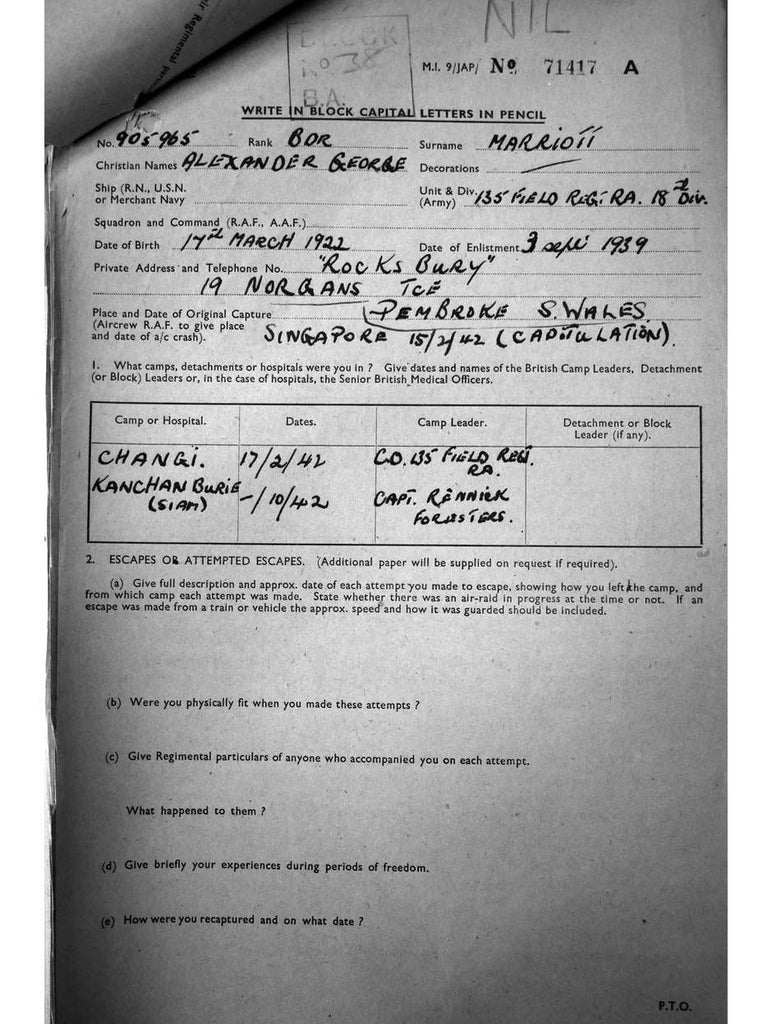 ir Regimental
NIL
BLOCK
No 38
B.A.
M.I. 9/JAP/ No 71417 A
WRITE IN BLOCK CAPITAL LETTERS IN PENCIL
No. 905965 Rank BDR Surname MARRIOTT
Christian Names ALEXANDER GEORGE Decorations —
Ship (R.N., U.S.N. or Merchant Navy Unit & Div. (Army) 135 FIELD REGT. RA. 18th Div.
Squadron and Command (R.A.F., A.A.F.)
Date of Birth 17th MARCH 1922 Date of Enlistment 3 Sept 1939
Private Address and Telephone No. "ROCKS BURY"
19 NORGANS TCE
PEMBROKE S. WALES.
Place and Date of Original Capture
(Aircrew R.A.F. to give place
and date of a/c crash). SINGAPORE 15/2/42 (CAPITULATION).
1. What camps, detachments or hospitals were you in ? Give dates and names of the British Camp Leaders, Detachment
(or Block) Leaders or, in the case of hospitals, the Senior British Medical Officers.
Camp or Hospital. Dates. Camp Leader. Detachment or Block
Leader (if any).
CHANGI. 17/2/42 C.O. 135 FIELD REGT.
RA.
KANCHAN BURIE -/10/42 CAPT. RENNICK
(SIAM) FORESTERS.
2. ESCAPES OR ATTEMPTED ESCAPES. (Additional paper will be supplied on request if required).
(a) Give full description and approx. date of each attempt you made to escape, showing how you left the camp, and
from which camp each attempt was made. State whether there was an air-raid in progress at the time or not. If an
escape was made from a train or vehicle the approx. speed and how it was guarded should be included.
(b) Were you physically fit when you made these attempts ?
(c) Give Regimental particulars of anyone who accompanied you on each attempt.
What happened to them ?
(d) Give briefly your experiences during periods of freedom.
(e) How were you recaptured and on what date ?
P.T.O.